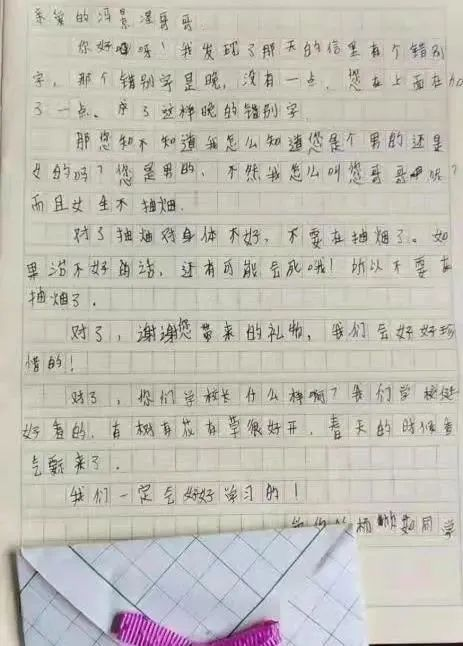 亲爱的冯景湿哥哥
你好呀!我发现了那天的信里有个错别
字,那个错别字是晚,没有一点,您在上面在加
了一点。所了这样晚的错别字
那您知不知道我怎么知道您是个男的还是
女的吗?您是男的,不然我怎么叫您哥哥呢?
而且女生不抽烟.
对了抽烟对身体不好,不要在抽烟了。如
果治不好的话,还有可能会死哦!所以不要在
抽烟了.
对了,谢谢您带来的礼物,我们会好好珍
惜的!
对了,您们学校长什么样啊?我们学校挺
好看的,有树有花有草很好开,春天的时候香
气飘来了.
我们一定会好好学习的!
杨 如同学